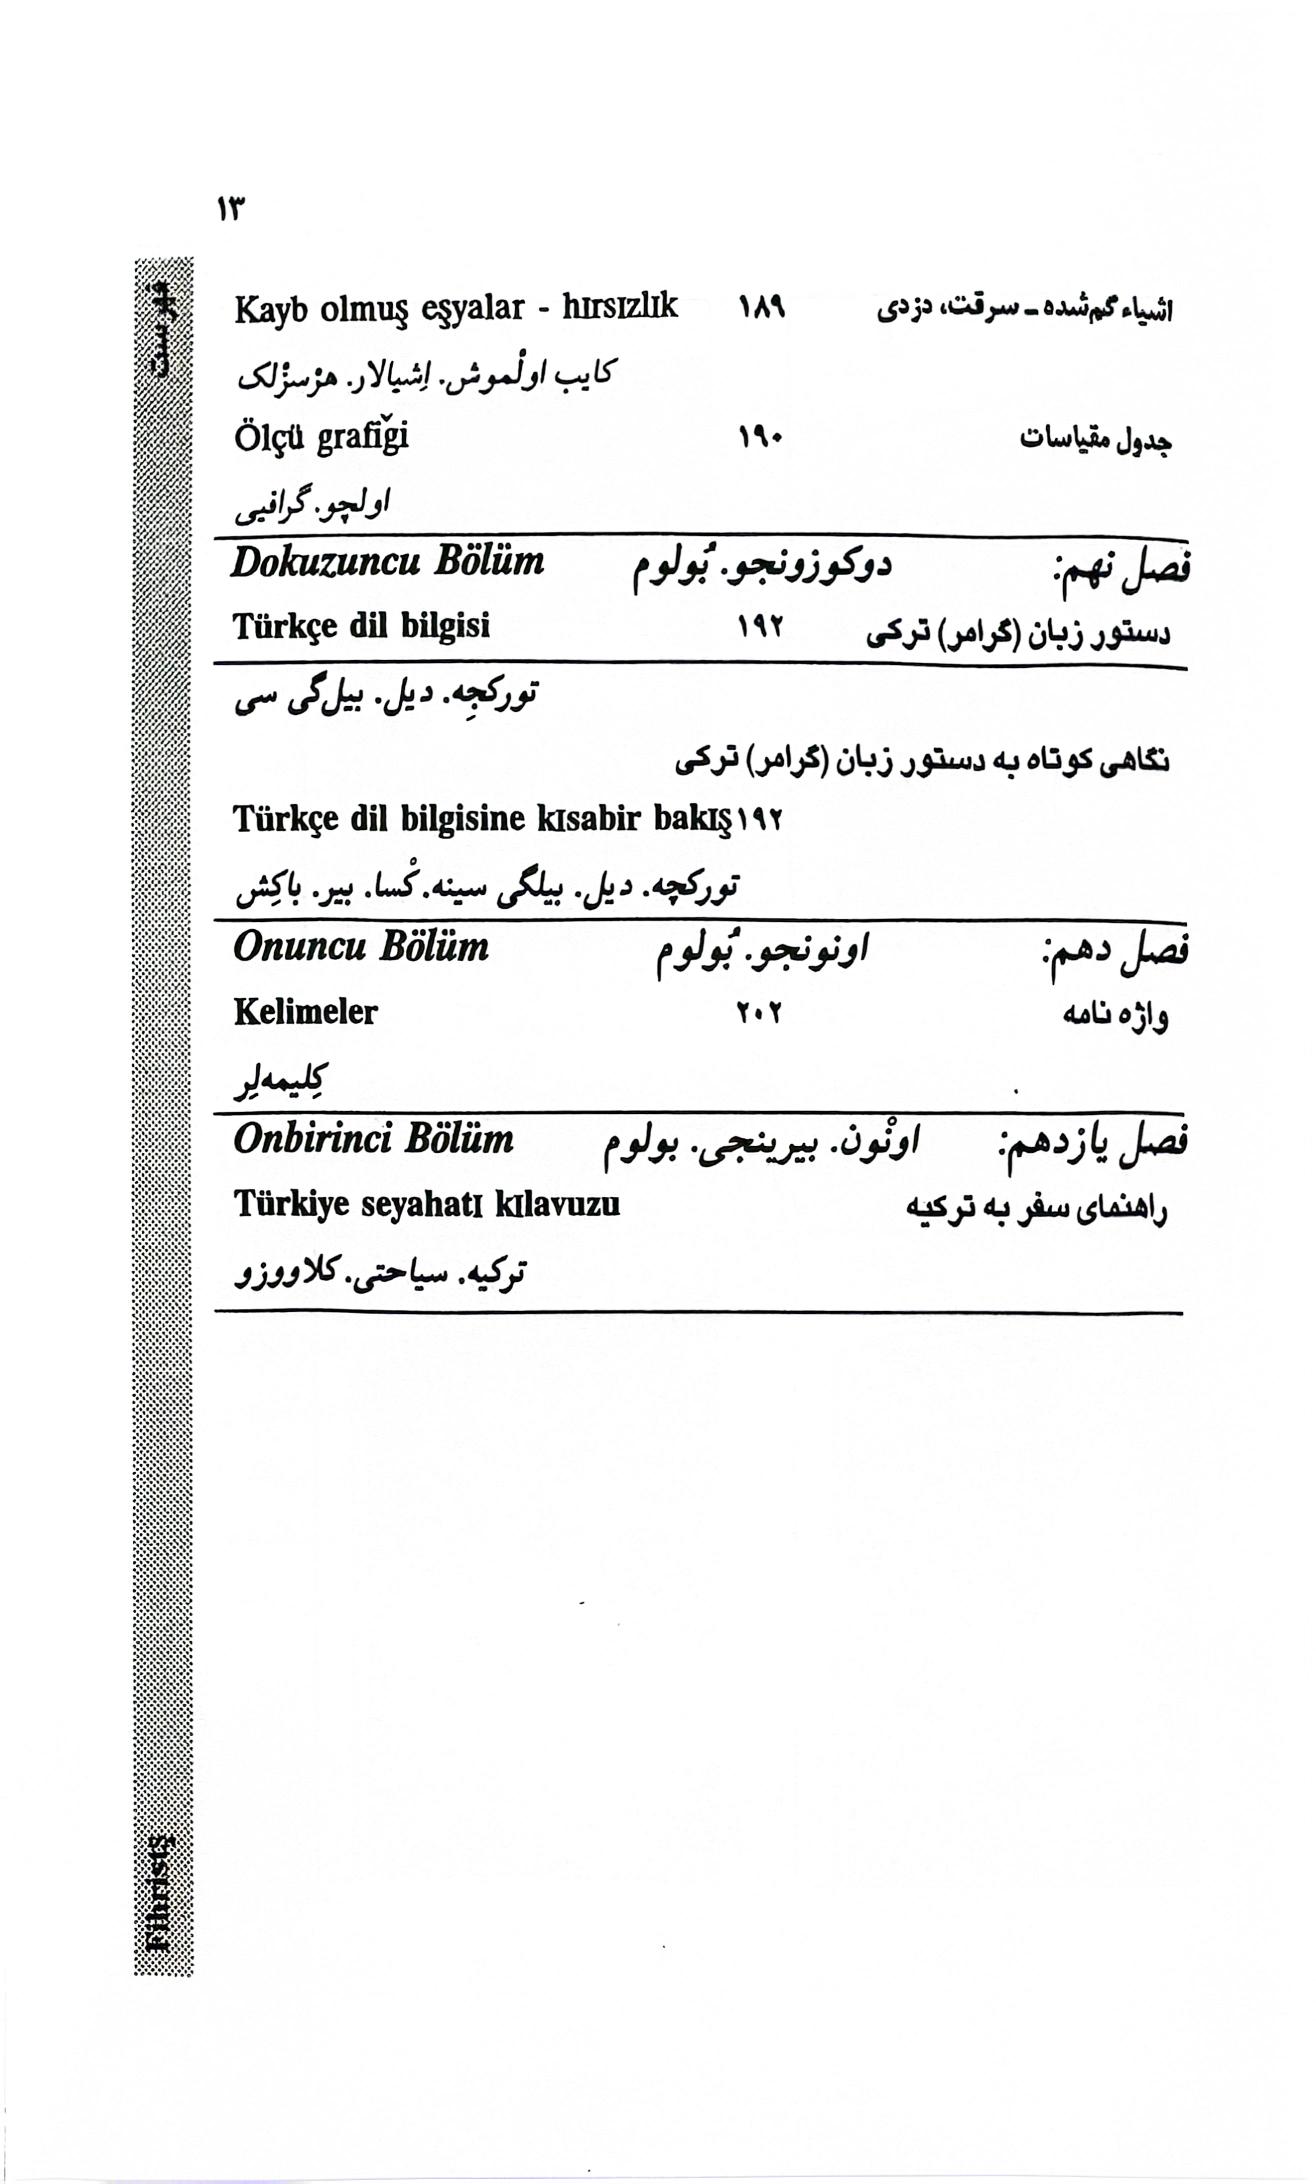 ۱۳
فهرست
Kayb olmuş eşyalar - hırsızlık ۱۸۹ اشیاء گم‌شده ـ سرقت، دزدی
کایب اولْموش. اِشیالار. هرْسزْلک
Ölçü grafiği ۱۹۰ جدول مقیاسات
اولچو. گرافیی
Dokuzuncu Bölüm دوکوزونجو. بُولوم فصل نهم:
Türkçe dil bilgisi ۱۹۲ دستور زبان (گرامر) ترکی
تورکچِه. دیل. بیل‌گی سی
نگاهی کوتاه به دستور زبان (گرامر) ترکی
Türkçe dil bilgisine kısabir bakış ۱۹۲
تورکچه. دیل. بیلگی سینه. کْسا. بیر. باکِش
Onuncu Bölüm اونونجو. بُولوم فصل دهم:
Kelimeler ۲۰۲ واژه نامه
کِلیمه‌لِر
Onbirinci Bölüm اونْون. بیرینجی. بولوم فصل یازدهم:
Türkiye seyahatı kılavuzu راهنمای سفر به ترکیه
ترکیه. سیاحتی. کلاووزو
Fihristş